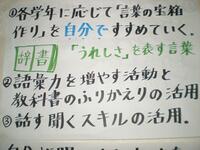 ①各学年に応じて「言葉の宝箱
作り」を自分ですすめていく。
辞書「うれしさ」を表す言葉
②語彙力を増やす活動と
教科書のふりかえりの活用
③話す聞くスキルの活用.